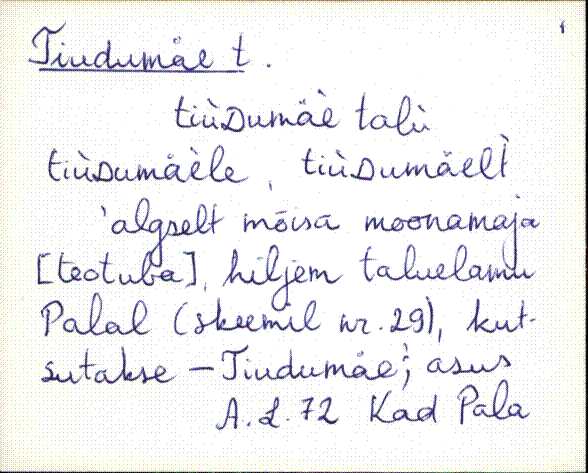 Tiudumäe t.
tiùDumäè talù
tiùDumäèle, tiùDumäelt̀
'algselt mõisa moonamaja
[teotuba], hiljem taluelamu
Palal (skeemil nr. 29), kut-
sutakse – Tiudumäe; asus
A. L. 72 Kad Pala